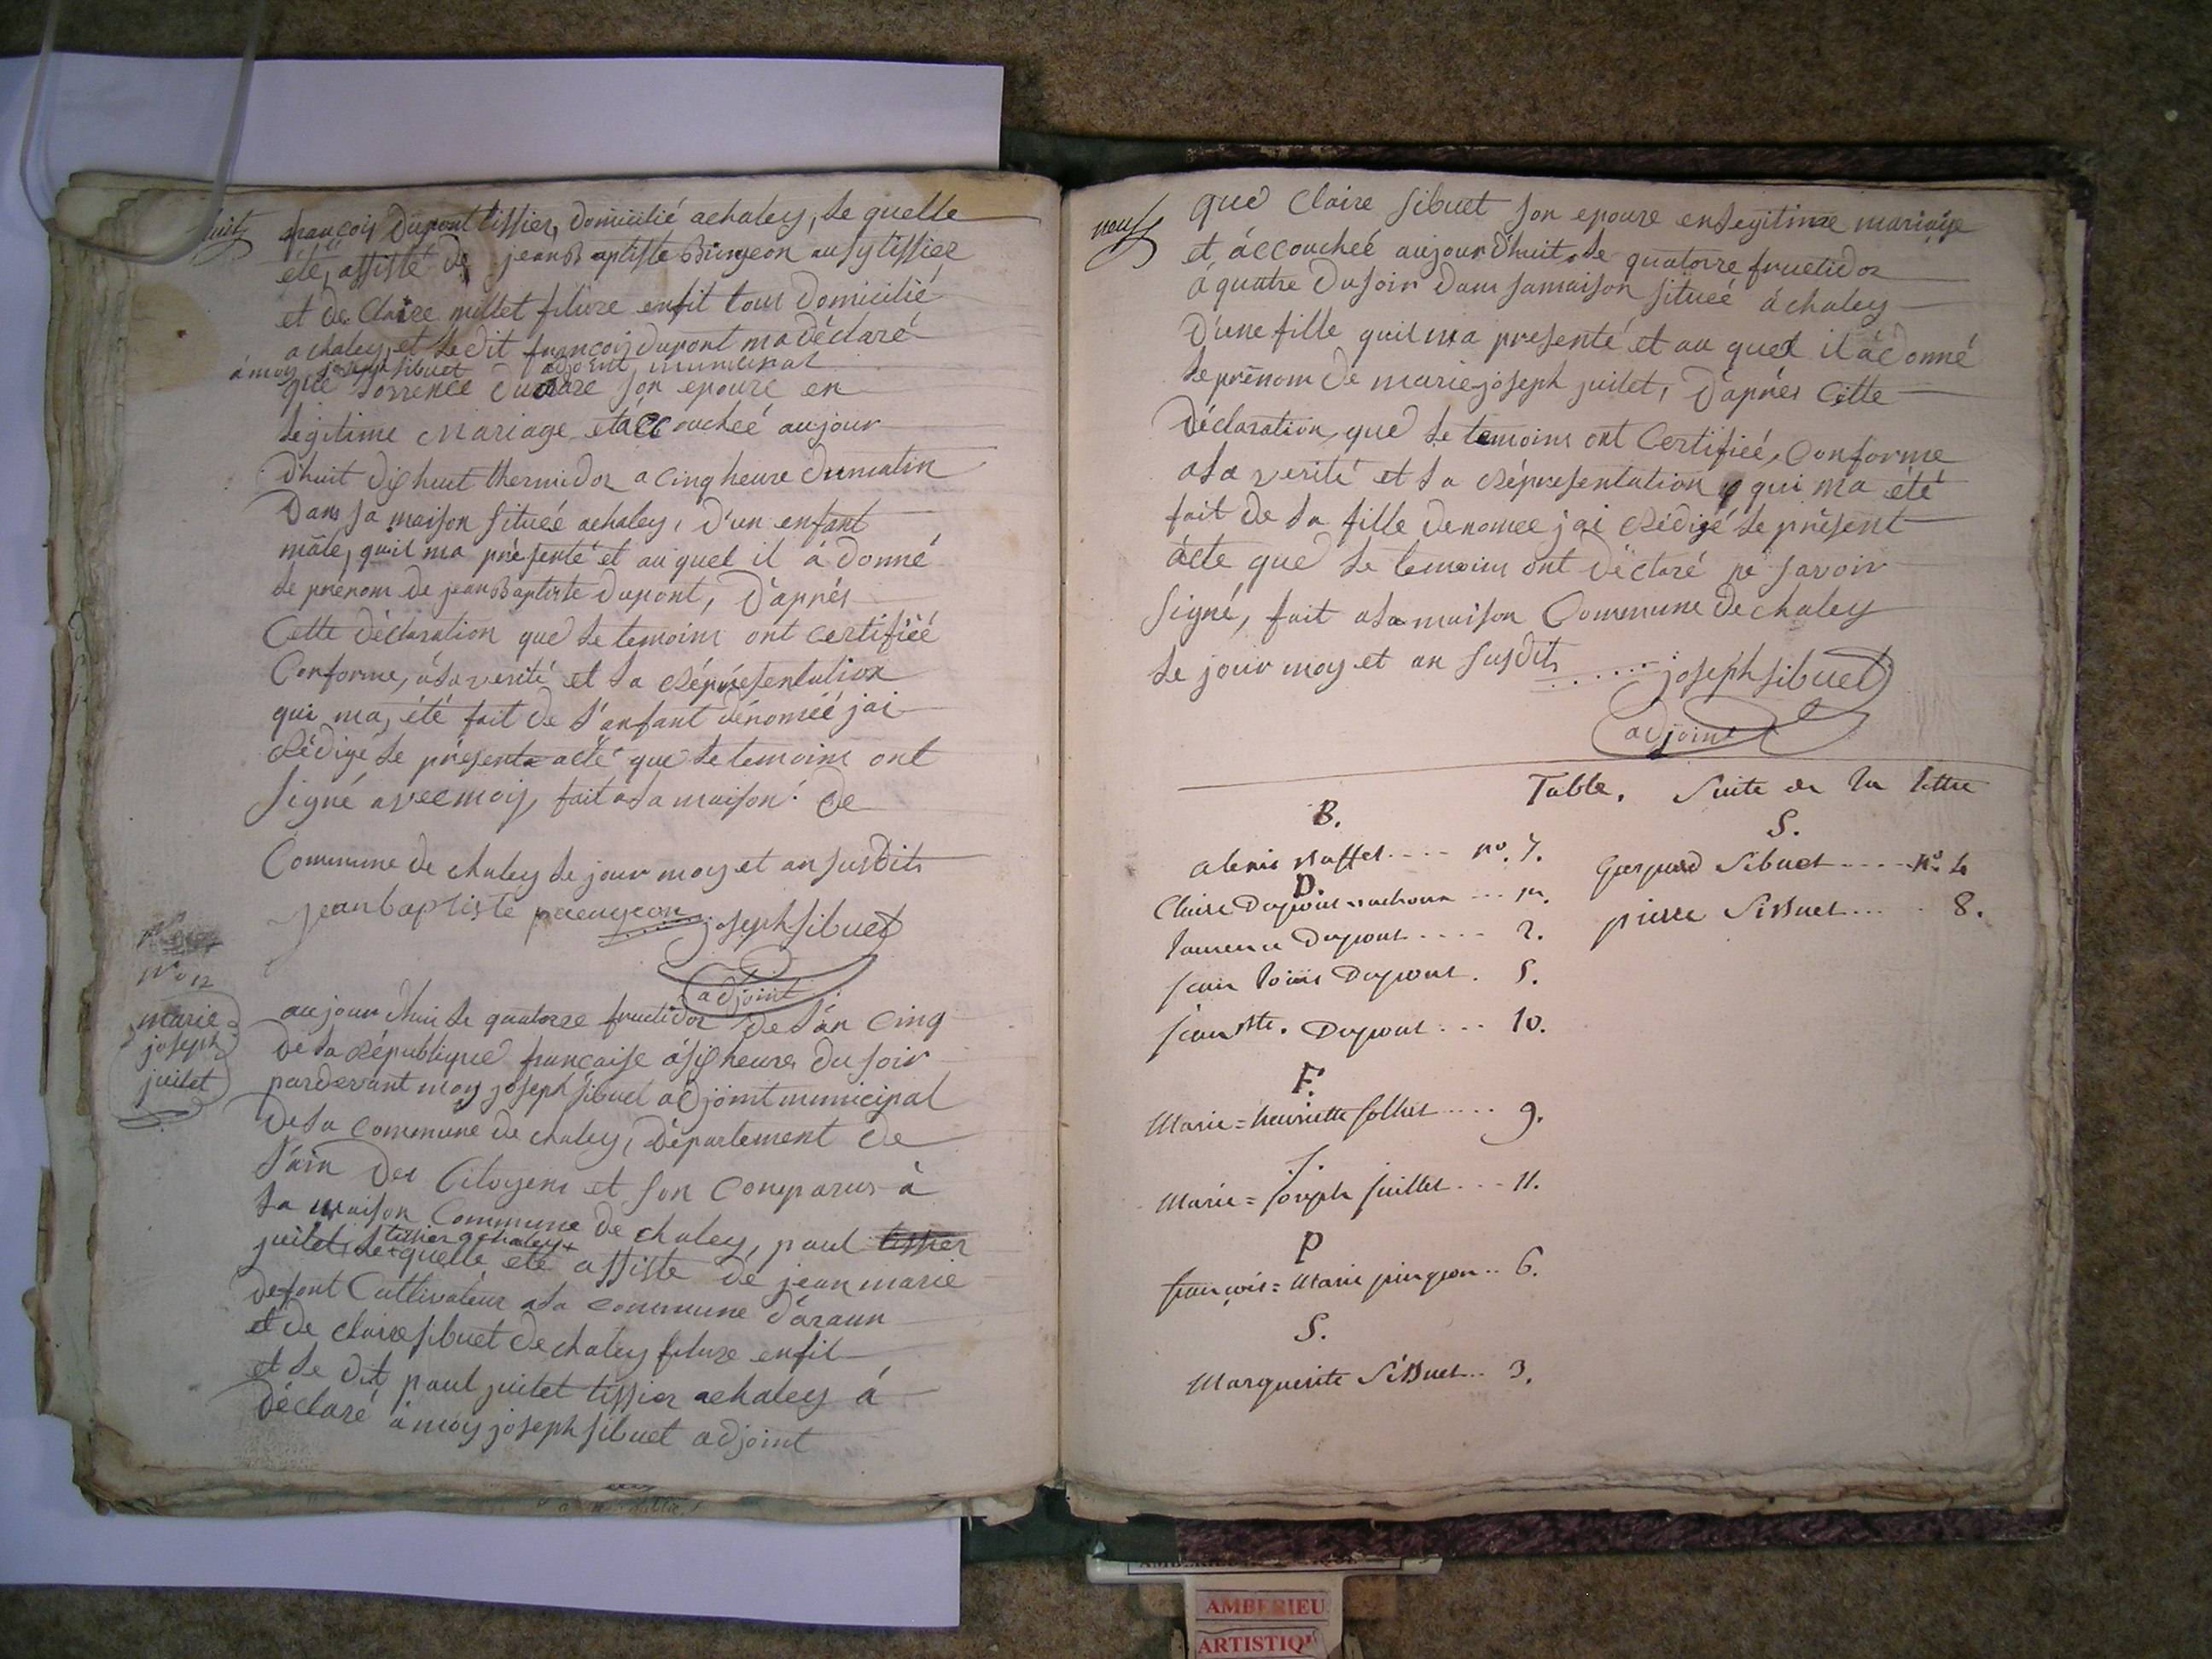 huit
françois Dupont tissier, domicilié achaley, le quelle
été, assisté de jean Baptiste Bingeon ausy tissier
et de Claire millet filure enfil tous domicilié
achaley, et le dit françois dupont ma déclaré
à moy joseph sibuet adjoint municipal
que Lorrence son epouze en
Legitime Mariage età accouchéé aujour
dhuit dix huit thermidor a cinq heure dumatin
Dans sa maison situéé achaley, d'un enfant
mâle, quil ma présenté et au quel il à donné
le prénom de jean Baptiste Dupont, D'apprés
Cette déclaration que le temoins ont certifiéé
Conforme, àla verité et la Réprésentation
qui ma, été fait de l'anfant dénoméé jai
Rédigé le présent acte que le temoins ont
signé avec moy, fait ala maison de
Commune de chaley le jour moy et an susdits
jeanbaptiste preugeon joseph sibuet
adjoint
no 12
marie
joseph
juilet
aujourdhui le quatorze fructidor de l'an Cinq
De la République française à six heures du soir
pardevant moy joseph sibuet adjoint municipal
De la Commune de chaley, Département de
l'ain des Citoyens et son Comparus à
la maison Commune de chaley, paul tissier
tissier achaley
juilet, le quelle été assisté de jean marie
defont Cultivateur ala commune d'arann
et de claire sibuet de chaley filure enfil
et le dit, paul juilet tissier achaley á
déclaré à moy joseph sibuet adjoint
neuf
que Claire sibuet son epouze en Legitimae mariaije
et, àccouchéé aujour d'huit, le quatorze fructidor
á quatre Du soir Dans samaison situéé à chaley
D'une fille quil ma presenté et au quel il à donné
le prénom de marie joseph juilet, D'aprés Cette
Déclaration, que le temoins ont Certifiéé, Conforme
ala verité et la Réprésentation qui ma été
fait de la fille denomee jai Rédigé le présent
ácte que le temoins ont déclaré ne savoir
signé, fait ala maison Commune de chaley
le jour moy et an susdits joseph sibuet
adjoint
Table. Suite de la lettre
B. S.
nº. 7. Gaspard Sibuet nº. 4
D.
Claire Dupont
pierre Sibuet 8.
laurence Dupont 2.
jean loüis Dupont. 5.
jean Bte. Dupont 10.
F.
Marie=henriette follies 9.
J.
Marie=joseph juillet 11.
P
françois=Marie pingeon 6.
S.
Marguerite Sibuet 3.
AMBERIEU
ARTISTIQ